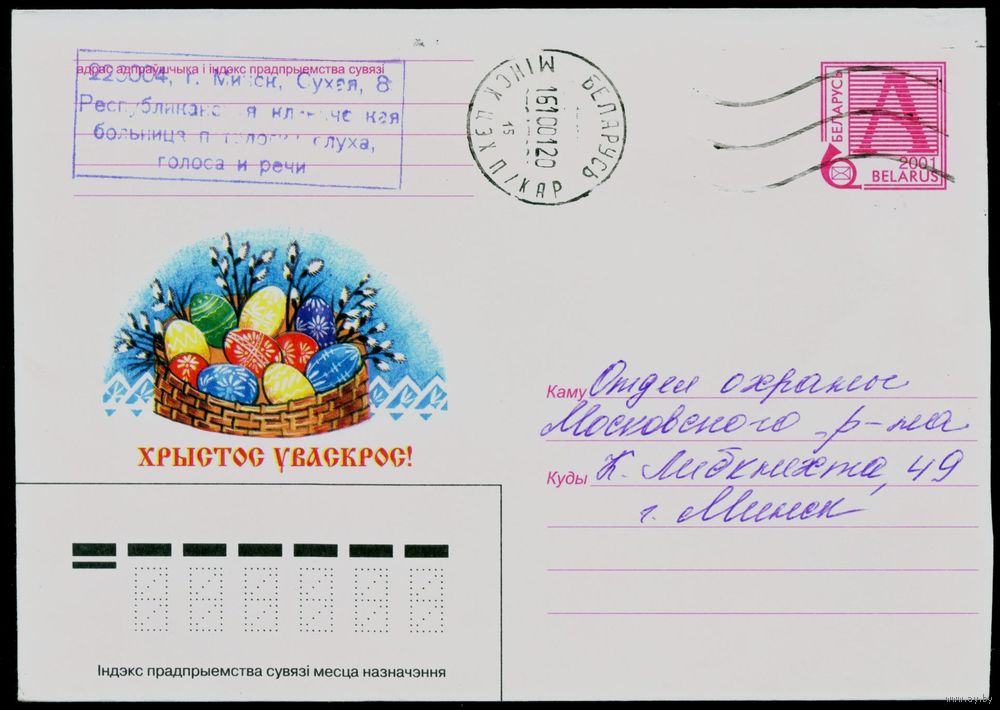 адрас адпраўшчыка і індэкс прадпрыемства сувязі
г. Минск, Сухая, 8
Республиканская клиническая
больница патологии слуха,
голоса и речи
БЕЛАРУСЬ
МІНСК ЦЕХ П/КАР
15
БЕЛАРУСЬ
А
2001
BELARUS
ХРЫСТОС УВАСКРОС!
Каму Отдел охраны
Московского р-на
Куды К. Либкнехта, 49
г. Минск
Індэкс прадпрыемства сувязі месца назначэння
www.ay.by